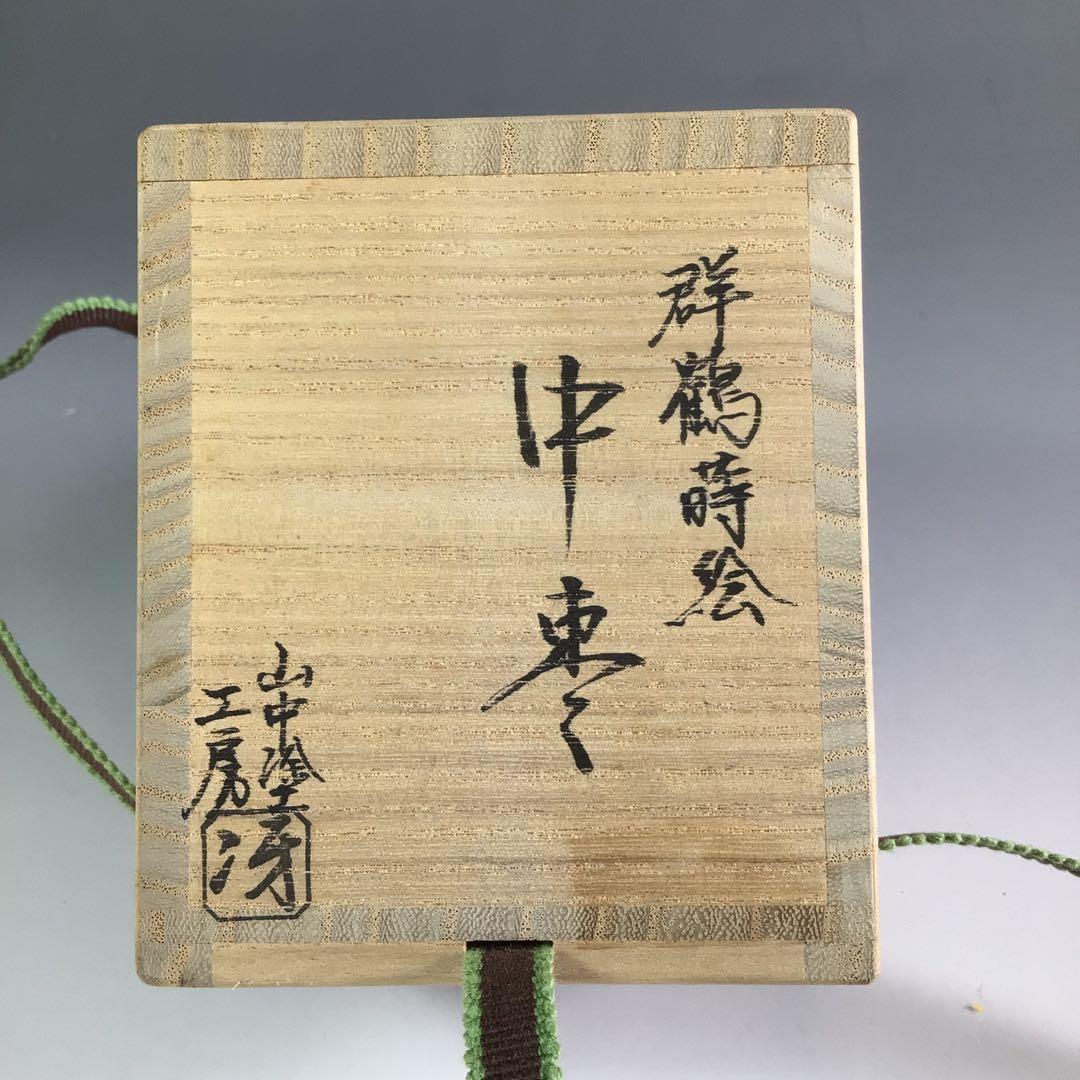 群鶴蒔絵
中棗
山中塗
工房
冴